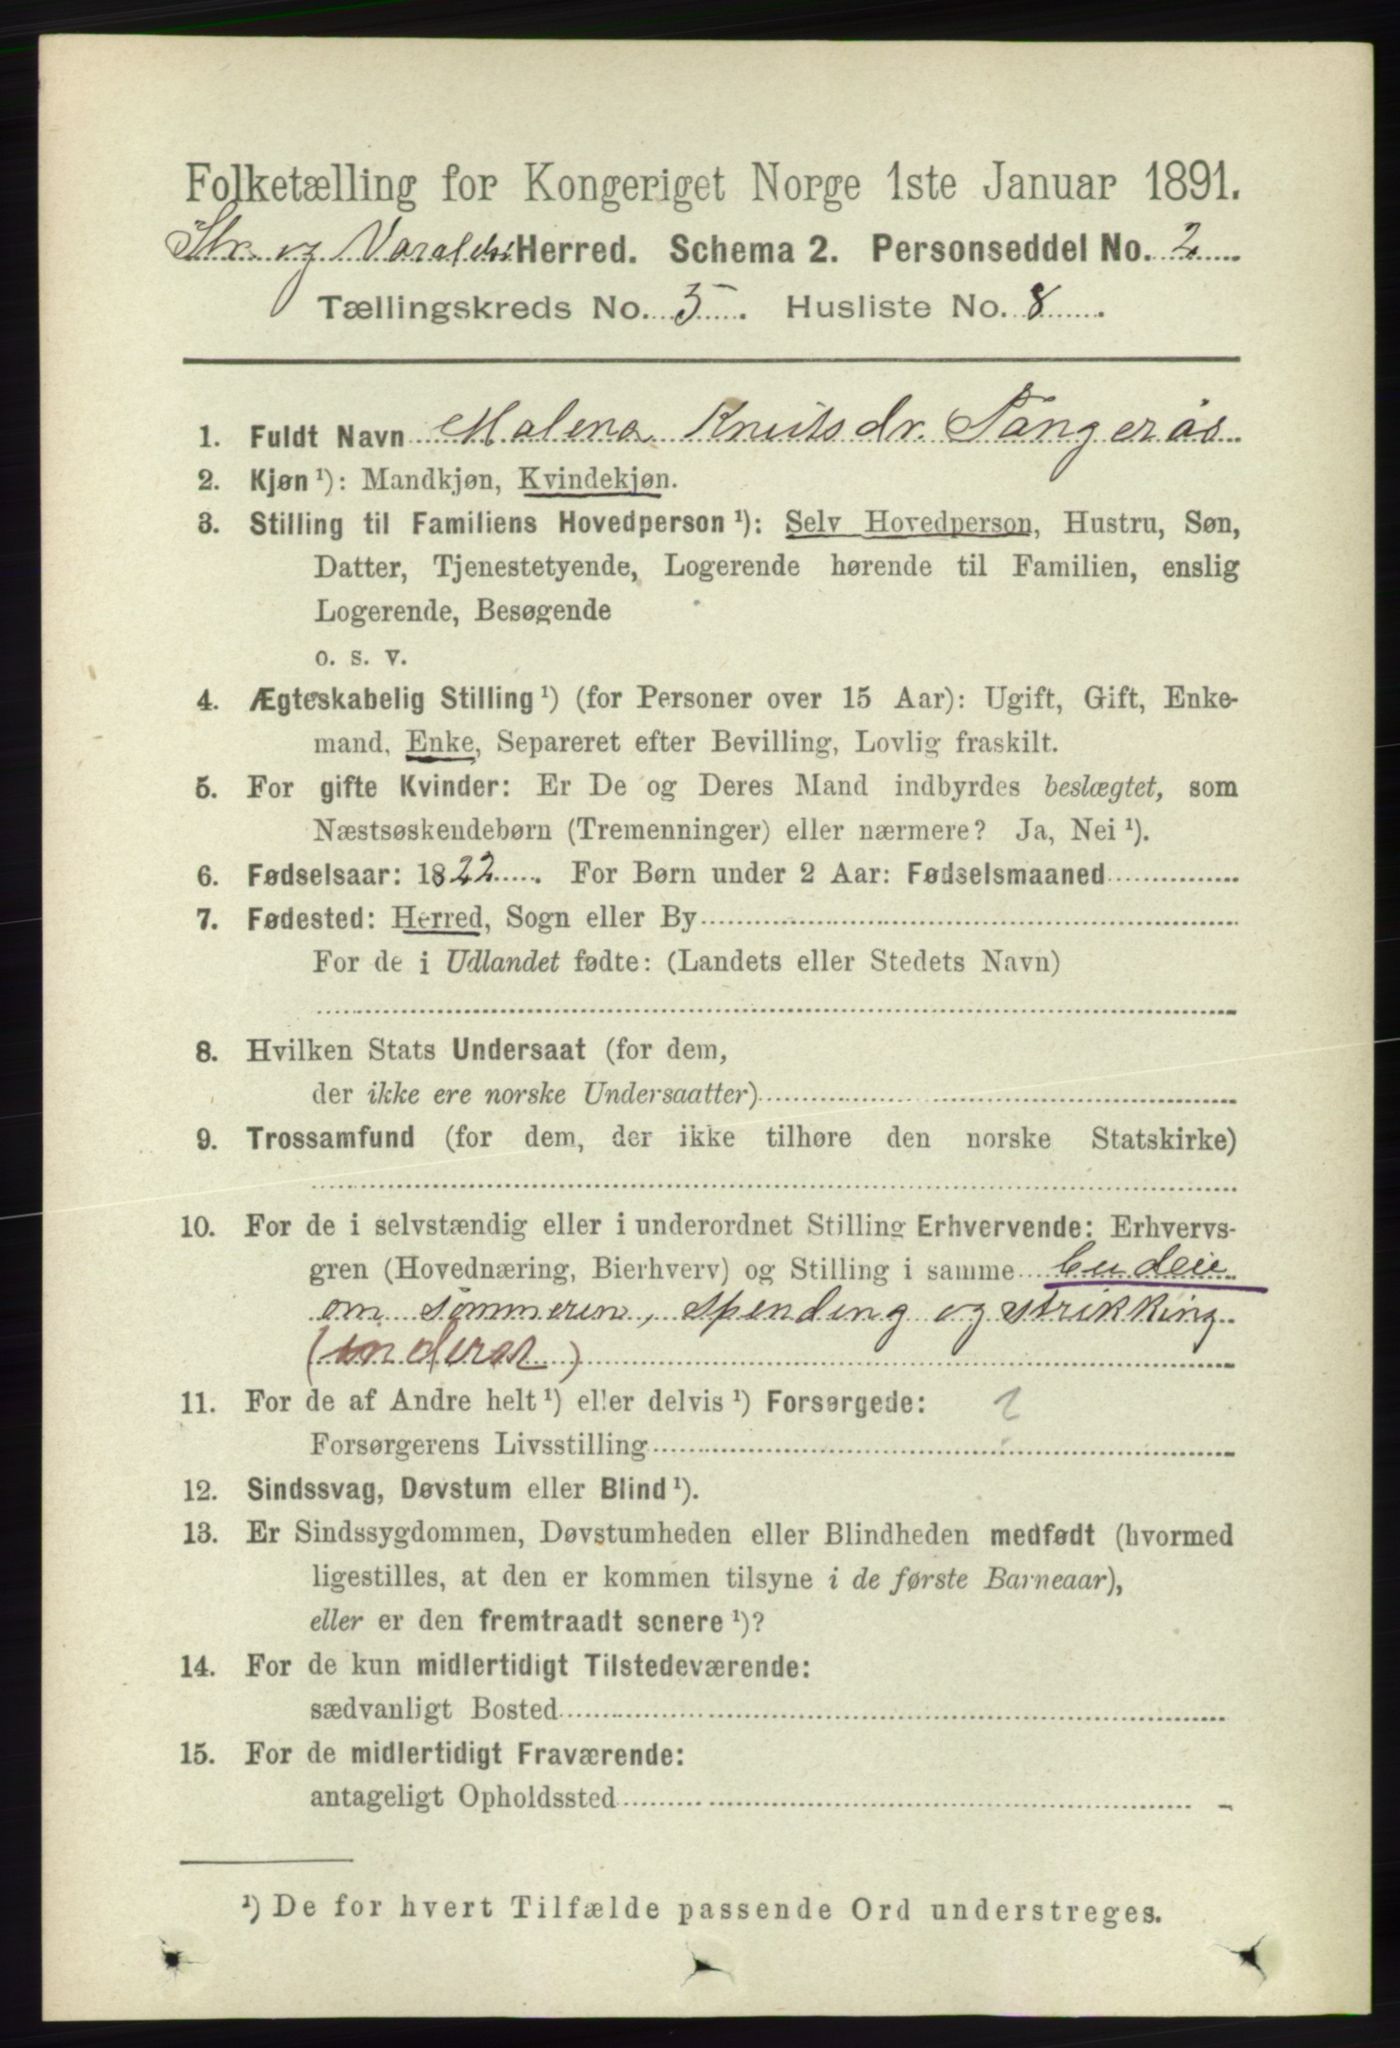 Folketælling for Kongeriget Norge 1ste Januar 1891.
Str. og Varalds Herred. Schema 2. Personseddel No. 2
Tællingskreds No. 5. Husliste No. 8.
1. Fuldt Navn Malena Knutsdr. Tangerås
2. Kjøn ¹): Mandkjøn, Kvindekjøn.
3. Stilling til Familiens Hovedperson ¹): Selv Hovedperson, Hustru, Søn,
Datter, Tjenestetyende, Logerende hørende til Familien, enslig
Logerende, Besøgende
o. s. v.
4. Ægteskabelig Stilling ¹) (for Personer over 15 Aar): Ugift, Gift, Enke-
mand, Enke, Separeret efter Bevilling, Lovlig fraskilt.
5. For gifte Kvinder: Er De og Deres Mand indbyrdes beslægtet, som
Næstsøskendebørn (Tremenninger) eller nærmere? Ja, Nei ¹).
6. Fødselsaar: 1822. For Børn under 2 Aar: Fødselsmaaned
7. Fødested: Herred, Sogn eller By
For de i Udlandet fødte: (Landets eller Stedets Navn)
8. Hvilken Stats Undersaat (for dem,
der ikke ere norske Undersaatter)
9. Trossamfund (for dem, der ikke tilhøre den norske Statskirke)
10. For de i selvstændig eller i underordnet Stilling Erhvervende: Erhvervs-
gren (Hovednæring, Bierhverv) og Stilling i samme budeie
om sommeren, spending og strikking
11. For de af Andre helt ¹) eller delvis ¹) Forsørgede:
Forsørgerens Livsstilling
12. Sindssvag, Døvstum eller Blind ¹).
13. Er Sindssygdommen, Døvstumheden eller Blindheden medfødt (hvormed
ligestilles, at den er kommen tilsyne i de første Barneaar),
eller er den fremtraadt senere ¹)?
14. For de kun midlertidigt Tilstedeværende:
sædvanligt Bosted
15. For de midlertidigt Fraværende:
antageligt Opholdssted
¹) De for hvert Tilfælde passende Ord understreges.